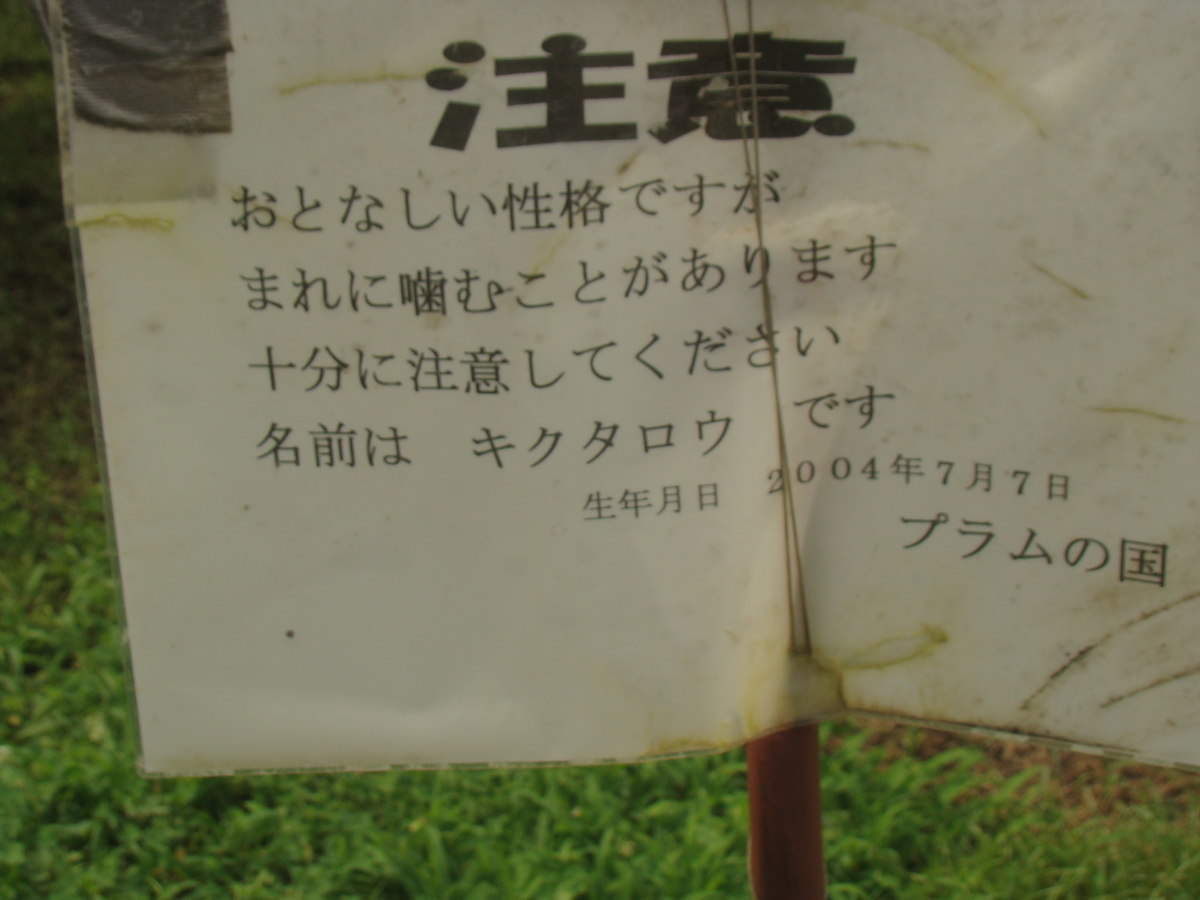 注意
おとなしい性格ですが
まれに噛むことがあります
十分に注意してください
名前は　キクタロウ　です
生年月日　2004年7月7日
プラムの国